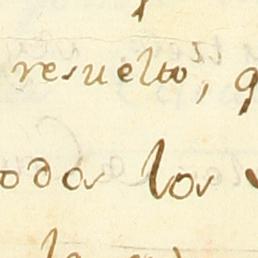 resuelto, q
odos los